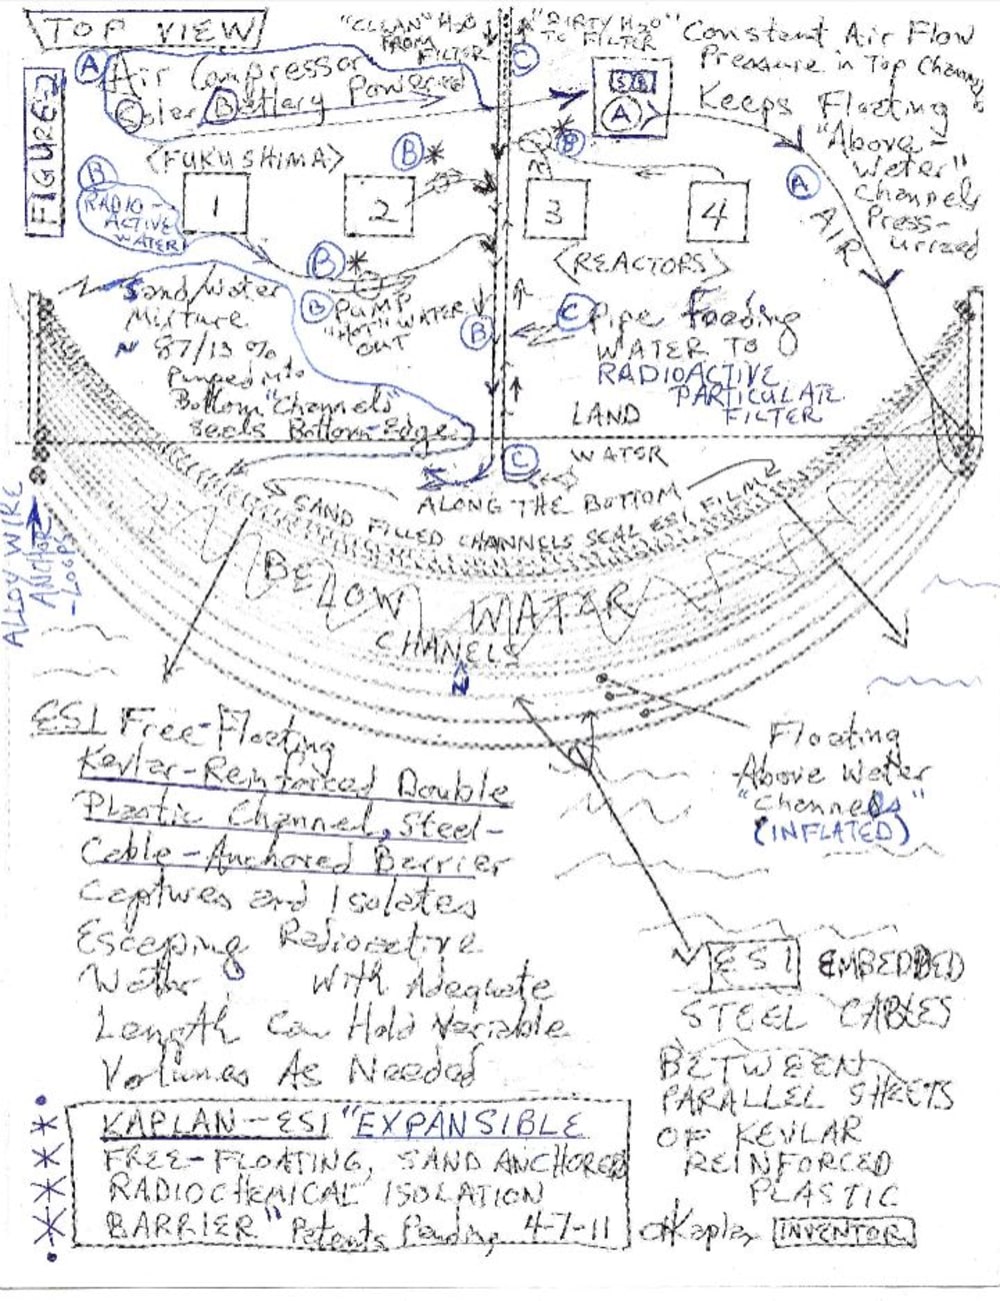 TOP VIEW
FIGURE 2
"CLEAN" H2O
FROM
FILTER
"DIRTY H2O"
TO FILTER
C
Constant Air Flow
Pressure in Top Channels
Keeps Floating
"Above-
Water"
Channels
Press-
urized
A
Air Compressor
Solar Battery Powered
C
B
A
<FUKUSHIMA>
B *
* B
A
AIR
B
RADIO-
ACTIVE
WATER
1
2
3
4
<REACTORS>
B *
B PUMP
"HOT" WATER
OUT
B
Sand/Water
Mixture
N 87/13 %
Pumped into
Bottom "Channels"
Seals Bottom-Edge
C Pipe Feeding
WATER TO
RADIOACTIVE
PARTICULATE
FILTER
LAND
WATER
C
ALONG THE BOTTOM
SAND FILLED CHANNELS SEAL ESI FILM
ALLOY WIRE
ANCHOR
-LOOPS
BELOW WATER
CHANELS
N
ESI Free-Floating
Kevlar-Reinforced Double
Plastic Channel, Steel-
Cable-Anchored Barrier
Captures and Isolates
Escaping Radioactive
Water, With Adequate
Length Can Hold Variable
Volumes As Needed
Floating
Above Water
"Channels"
(INFLATED)
ESI EMBEDDED
STEEL CABLES
BETWEEN
PARALLEL SHEETS
OF KEVLAR
REINFORCED
PLASTIC
KAPLAN-ESI "EXPANSIBLE
FREE-FLOATING, SAND ANCHORED
RADIOCHEMICAL ISOLATION
BARRIER" Patents Pending 4-7-11
Kaplan INVENTOR